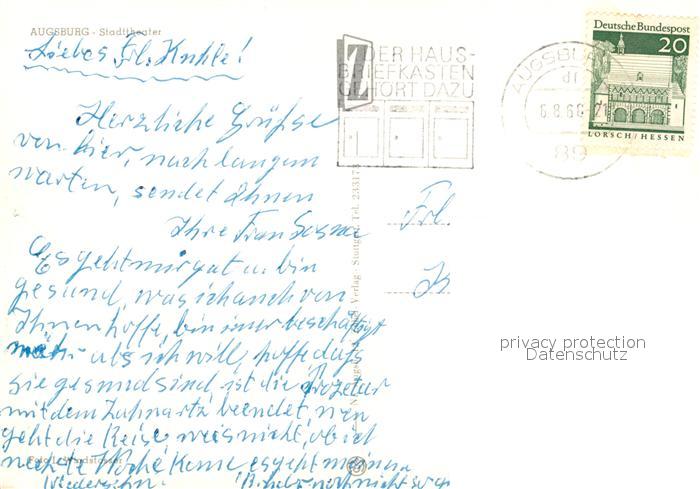 AUGSBURG - Stadttheater
Liebes Frl. Kuhle!
Herzliche Grüße
von hier, nach langem
warten, sendet Ihnen
Ihre Frau
Es geht mir gut u. bin
gesund, was ich auch von
Ihnen hoffe, bin imer beschäftigt
mehr als ich will, hoffe daß
sie gesund sind, ist die Prozetur
mit dem Zahnartz beendet, wen
geht die Reise weis nicht, ob ich
nechste Woche kome, es geht meinem
Wiedersehn.
DER HAUS-
BRIEFKASTEN
GEHÖRT DAZU
AUGSBURG
6.8.68
89
Deutsche Bundespost
20
LORSCH/HESSEN
Verlag · Stuttgart Tel. 233173
Frl.
privacy protection
Datenschutz